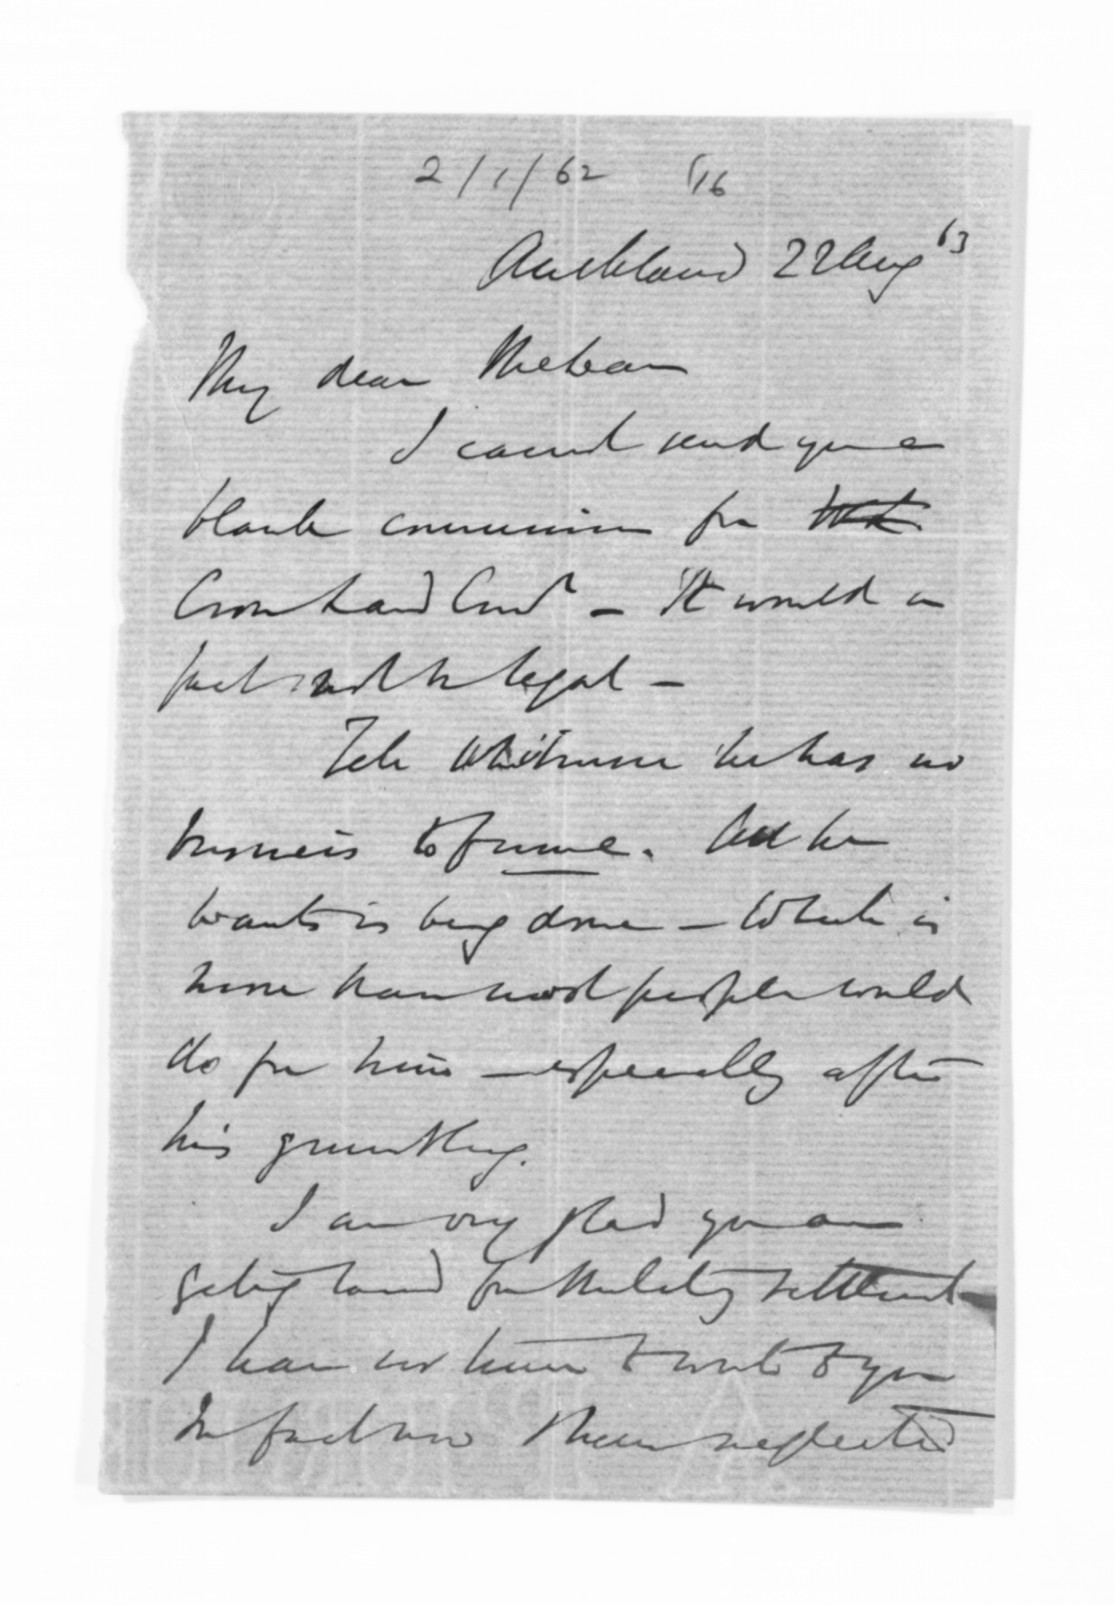 2/1/62 116
Auckland 22 Aug 63
My dear McLean
I cannot send you a
blank commission for
Crown Land Comr - It would in
fact not be legal -
Tell Whitmore he has no
business to fume. All he
wants is being done - Which is
more than most people would
do for him - especially after
his grumbling.
I am very glad you are
getting land for Military settlement
I have no time to write to you
In fact now I have neglected